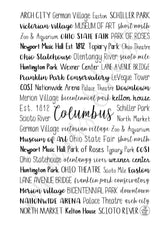 ARCH CITY German Village Easton SCHILLER PARK
victorian village MUSEUM OF ART short north
Zoo & Aquarium OHIO STATE FAIR PARK OF ROSES
Newport Music Hall Est 1812 Topiary Park Ohio Theatre
Ohio Statehouse Olentangy River scioto mile
Huntington Park Wexner Center LANE AVENUE BRIDGE
Franklin Park Conservatory LeVeque Tower
COSI Nationwide Arena Palace Theatre Downtown
Merion Village bicentennial park kelton house
EST. 1812
Scioto River
German Village
Columbus
Schiller Park
North Market
Easton victorian village Zoo & Aquarium
Museum of Art Ohio State Fair short north
Newport Music Hall Park of Roses COSI
Ohio Statehouse Olentangy River
Huntington Park OHIO THEATRE Scioto Mile Easton
LANE AVENUE BRIDGE franklin park conservatory
Merion village BICENTENNIAL PARK downtown
NATIONWIDE ARENA Palace Theatre arch city
NORTH MARKET Kelton House SCIOTO RIVER